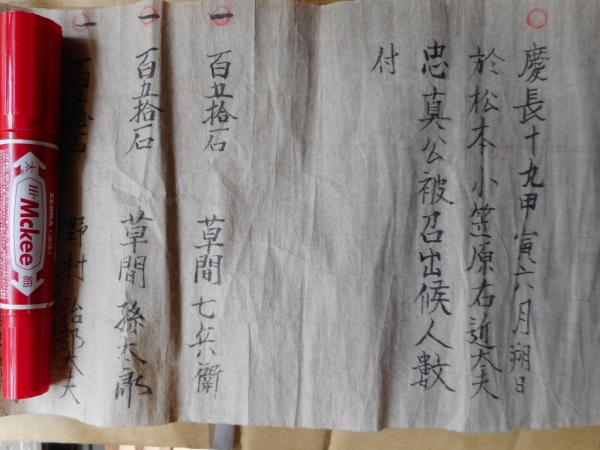 慶長十九甲寅六月朔日
於松本小笠原右近太夫
忠真公被召出候人数
付
一 百五拾石 草間七兵衛
一 百五拾石 草間孫太郎
一 百五拾石 野村治部太夫
ZEBRA
Mckee
太
細